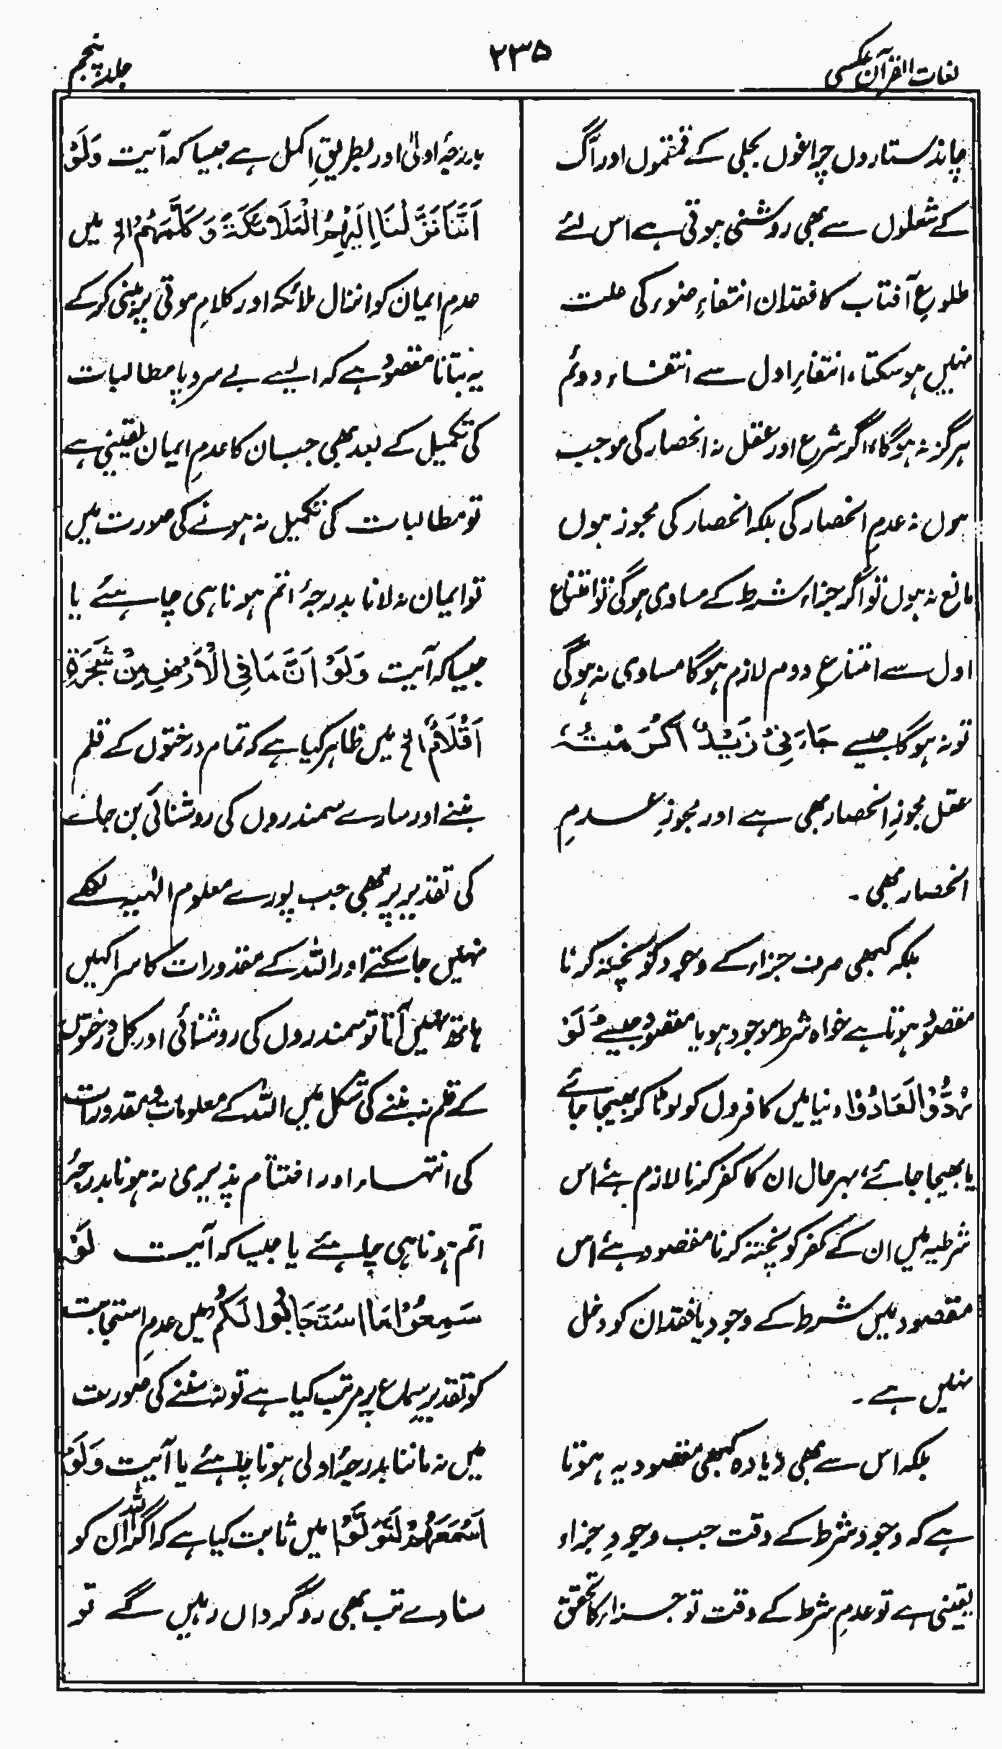 لغات القرآن عکسی
۲۳۵
جلد پنجم
چاند ستاروں چراغوں بجلی کے قمقموں اور آگ
کے شعلوں سے بھی روشنی ہوتی ہے اس لئے
طلوعِ آفتاب کا فقدان انتفاءِ ضوء کی علت
نہیں ہو سکتا، انتفاءِ اول سے انتفاء دوئم
ہرگز نہ ہوگا، اگر شرع اور عقل نہ انحصار کی موجب
ہوں نہ عدمِ انحصار کی بلکہ انحصار کی مجوز ہوں
مانع نہ ہوں تو اگر جزاء شرط کے مساوی ہوگی تو امتناع
اول سے امتناعِ دوم لازم ہوگا مساوی نہ ہوگی
تو نہ ہوگا جیسے جَاءَنِیْ زَیْدٌ اَکْرَمْتُہٗ
عقل مجوزِ انحصار بھی ہے اور مجوزِ عدمِ
انحصار بھی۔
بلکہ کبھی صرف جزاء کے وجود کو پختہ کرنا
مقصود ہوتا ہے خواہ شرط موجود ہو یا مفقود جیسے لَوْ
رُدُّوْا لَعَادُوْا دنیا میں کافروں کو لوٹا کر بھیجا جائے
یا نہ بھیجا جائے، بہرحال ان کا کفر کرنا لازم ہے، اس
شرطیہ میں ان کے کفر کو پختہ کرنا مقصود ہے، اس
مقصود میں شرط کے وجود یا فقدان کو دخل
نہیں ہے۔
بلکہ اس سے بھی زیادہ کبھی مقصود یہ ہوتا
ہے کہ وجود شرط کے وقت جب وجودِ جزاء
یقینی ہے تو عدمِ شرط کے وقت تو جزاء کا تحقق
بدرجۂ اولیٰ اور بطریقِ اکمل ہے جیسا کہ آیت وَلَوْ
اَنَّنَا نَزَّلْنَا اِلَیْہِمُ الْمَلَائِکَۃَ وَکَلَّمَہُمُ الخ میں
عدمِ ایمان کو انزالِ ملائکہ اور کلامِ موتی پر مبنی کر کے
یہ بتانا مقصود ہے کہ ایسے بے سروپا مطالبات
کی تکمیل کے بعد بھی جب ان کا عدمِ ایمان یقینی ہے
تو مطالبات کی تکمیل نہ ہونے کی صورت میں
تو ایمان نہ لانا بدرجۂ اتم ہونا ہی چاہئے یا
جیسا کہ آیت وَلَوْ اَنَّ مَا فِی الْاَرْضِ مِنْ شَجَرَۃٍ
اَقْلَامٌ الخ میں ظاہر کیا ہے کہ تمام درختوں کے قلم
بننے اور سارے سمندروں کی روشنائی بن جانے
کی تقدیر پر بھی جب پورے معلوم الٰہیہ لکھے
نہیں جا سکتے اور اللہ کے مقدورات کا سرا کہیں
ہاتھ نہیں آتا تو سمندروں کی روشنائی اور کل درختوں
کے قلم نہ بننے کی شکل میں اللہ کے معلومات و مقدورات
کی انتہاء اور اختتام پذیری نہ ہونا بدرجۂ
اتم ہونا ہی چاہئے یا جیسا کہ آیت لَوْ
سَمِعُوْا مَا اسْتَجَابُوْا لَکُمْ میں عدمِ استجابت
کو تقدیرِ سماع پر مرتب کیا ہے تو نہ سننے کی صورت
میں نہ ماننا بدرجۂ اولی ہونا چاہئے یا آیت وَلَوْ
اَسْمَعَہُمْ لَتَوَلَّوْا میں ثابت کیا ہے کہ اگر اللہ ان کو
سنا دے تب بھی روگرداں رہیں گے تو